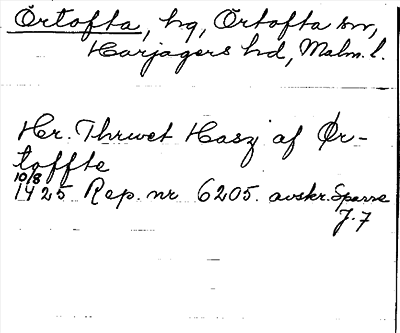 Örtofta, hg, Örtofta sn,
Harjagers hd, Malm. l.
Hr. Thrwet Hasz af Ør-
toffte
10/8
1425 Rep. nr 6205. avskr. Sparre
J. 7